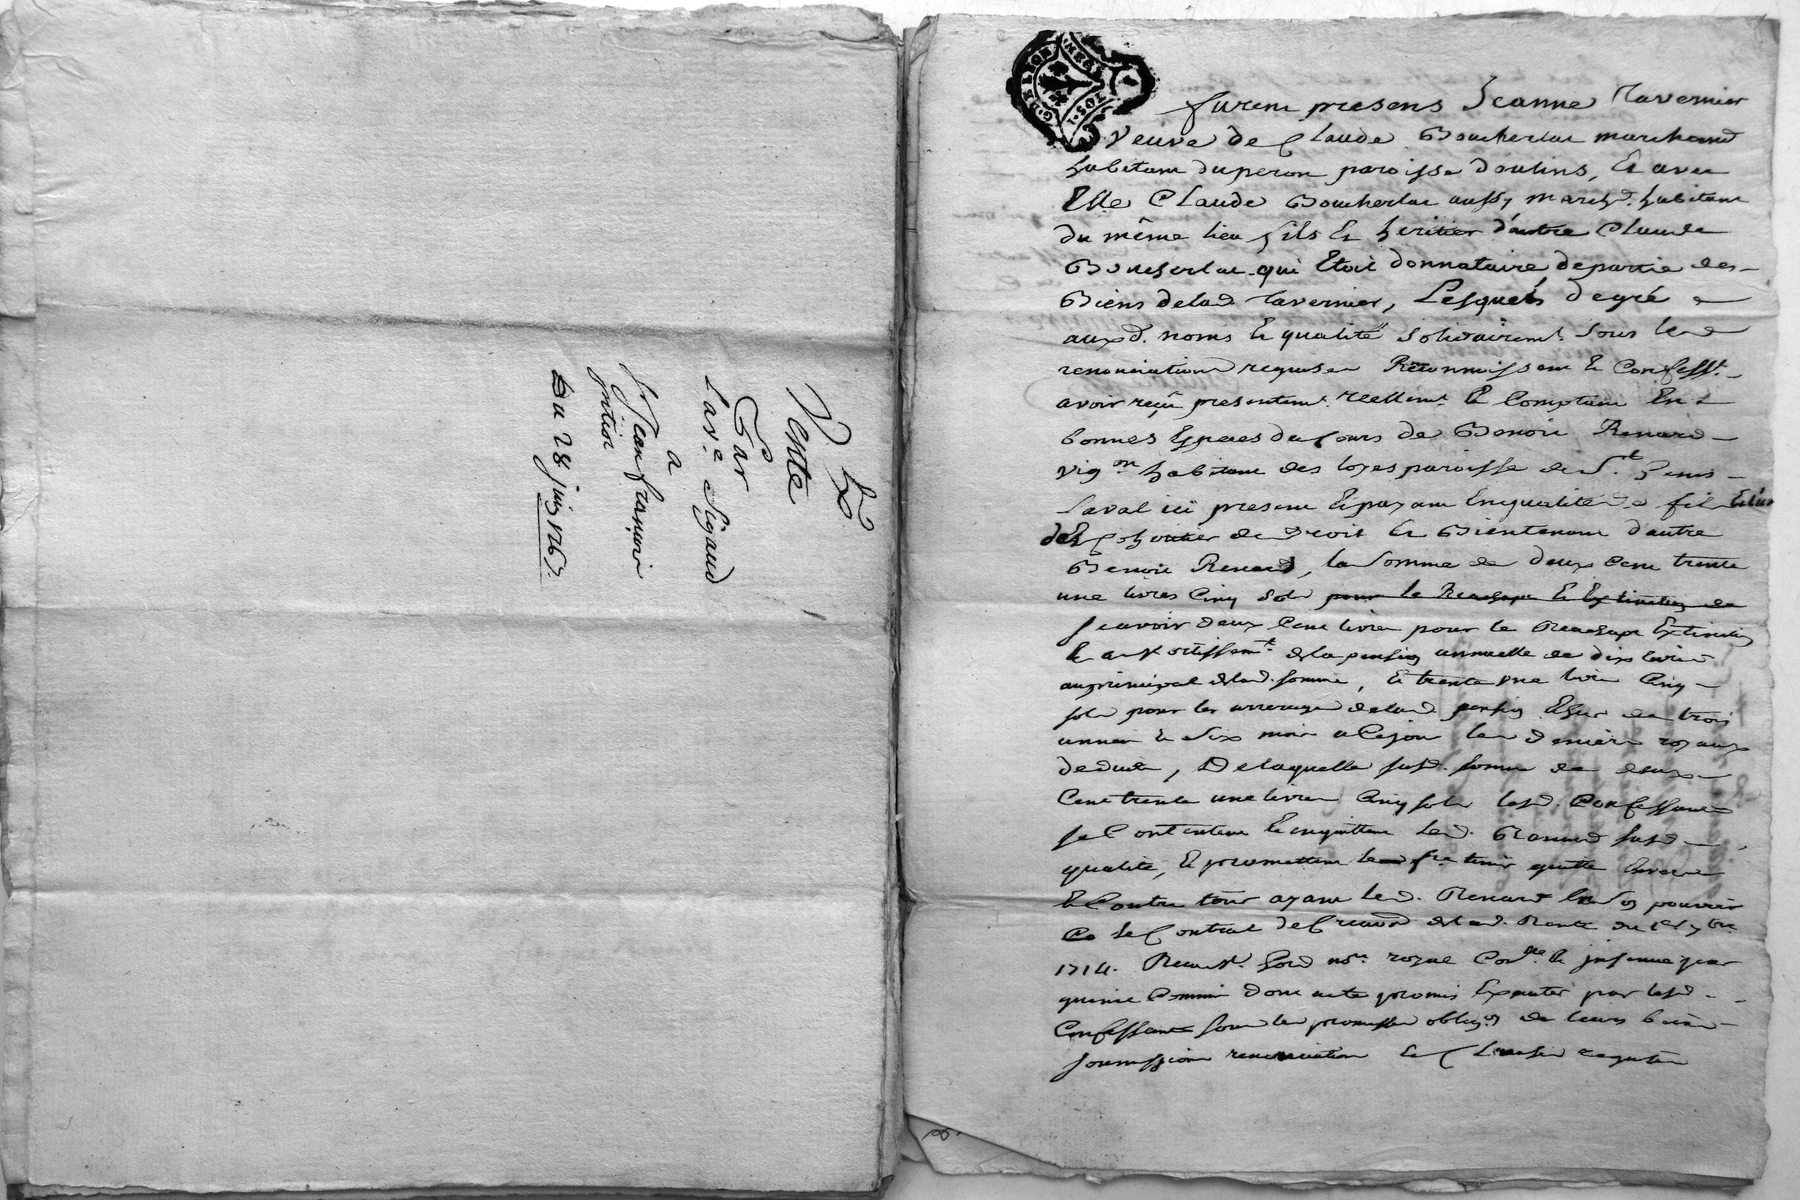 Vente
Par
Lave Sigaud
a
Sr Jean françois
Du 28 juin 1767.
G. DE LYON
Furent presens Jeanne Tavernier
veuve de Claude Boucherlat marchand
habitant du peron paroisse d'oulins, Et avec
Elle Claude Boucherlat aussy march.d habitant
du même lieu fils Et héritier d'autre Claude
Boucherlat qui Etoit donnataire de partie des
Biens de lad. Tavernier, Lesquels de gré
aux d. noms Et qualité solidairemt. sous les
renonciations requises Reconnoissent Et Confesst.
avoir reçû presentemt. réellemt. Et Comptant En
bonnes Especes du Cours de Benoit Renard
vigon habitant des loyes paroisse de St. Genis
Laval ici present Et payant En qualité de fils Et l'un
des Cohéritier de droit Et Bientenant d'autre
Benoit Renard, la somme de deux Cent trente
une livres Cinq sols pour le Rachapt Et Extinction de
scavoir deux Cent livres pour le Rachapt Extinction
Et amortissemt. de la pension annuelle de dix livres
au principal de lad. somme, Et trente une livre Cinq
sols pour les arrerages de lad. pension Echus de trois
année Et Six mois a Ce jour les deniers royaux
deduits, De laquelle susd. somme de deux
Cent trente une livres Cinq sols lesd. Confessants
se Contentent Et en quittent led. Renard susd.
qualité, Et promettent le fre. tenir quitte Envers
Et Contre tous ayant led. Renard En son pouvoir
Ce le Contrat de Creation de lad. Rente du 1er 7bre
1714. Reçu Pt. not. royal
quinze Commis dont acte promis Executer par lesd.
Confessants sous les promesses oblig.on de leurs biens
soumissions renonciation Et Clauses requises